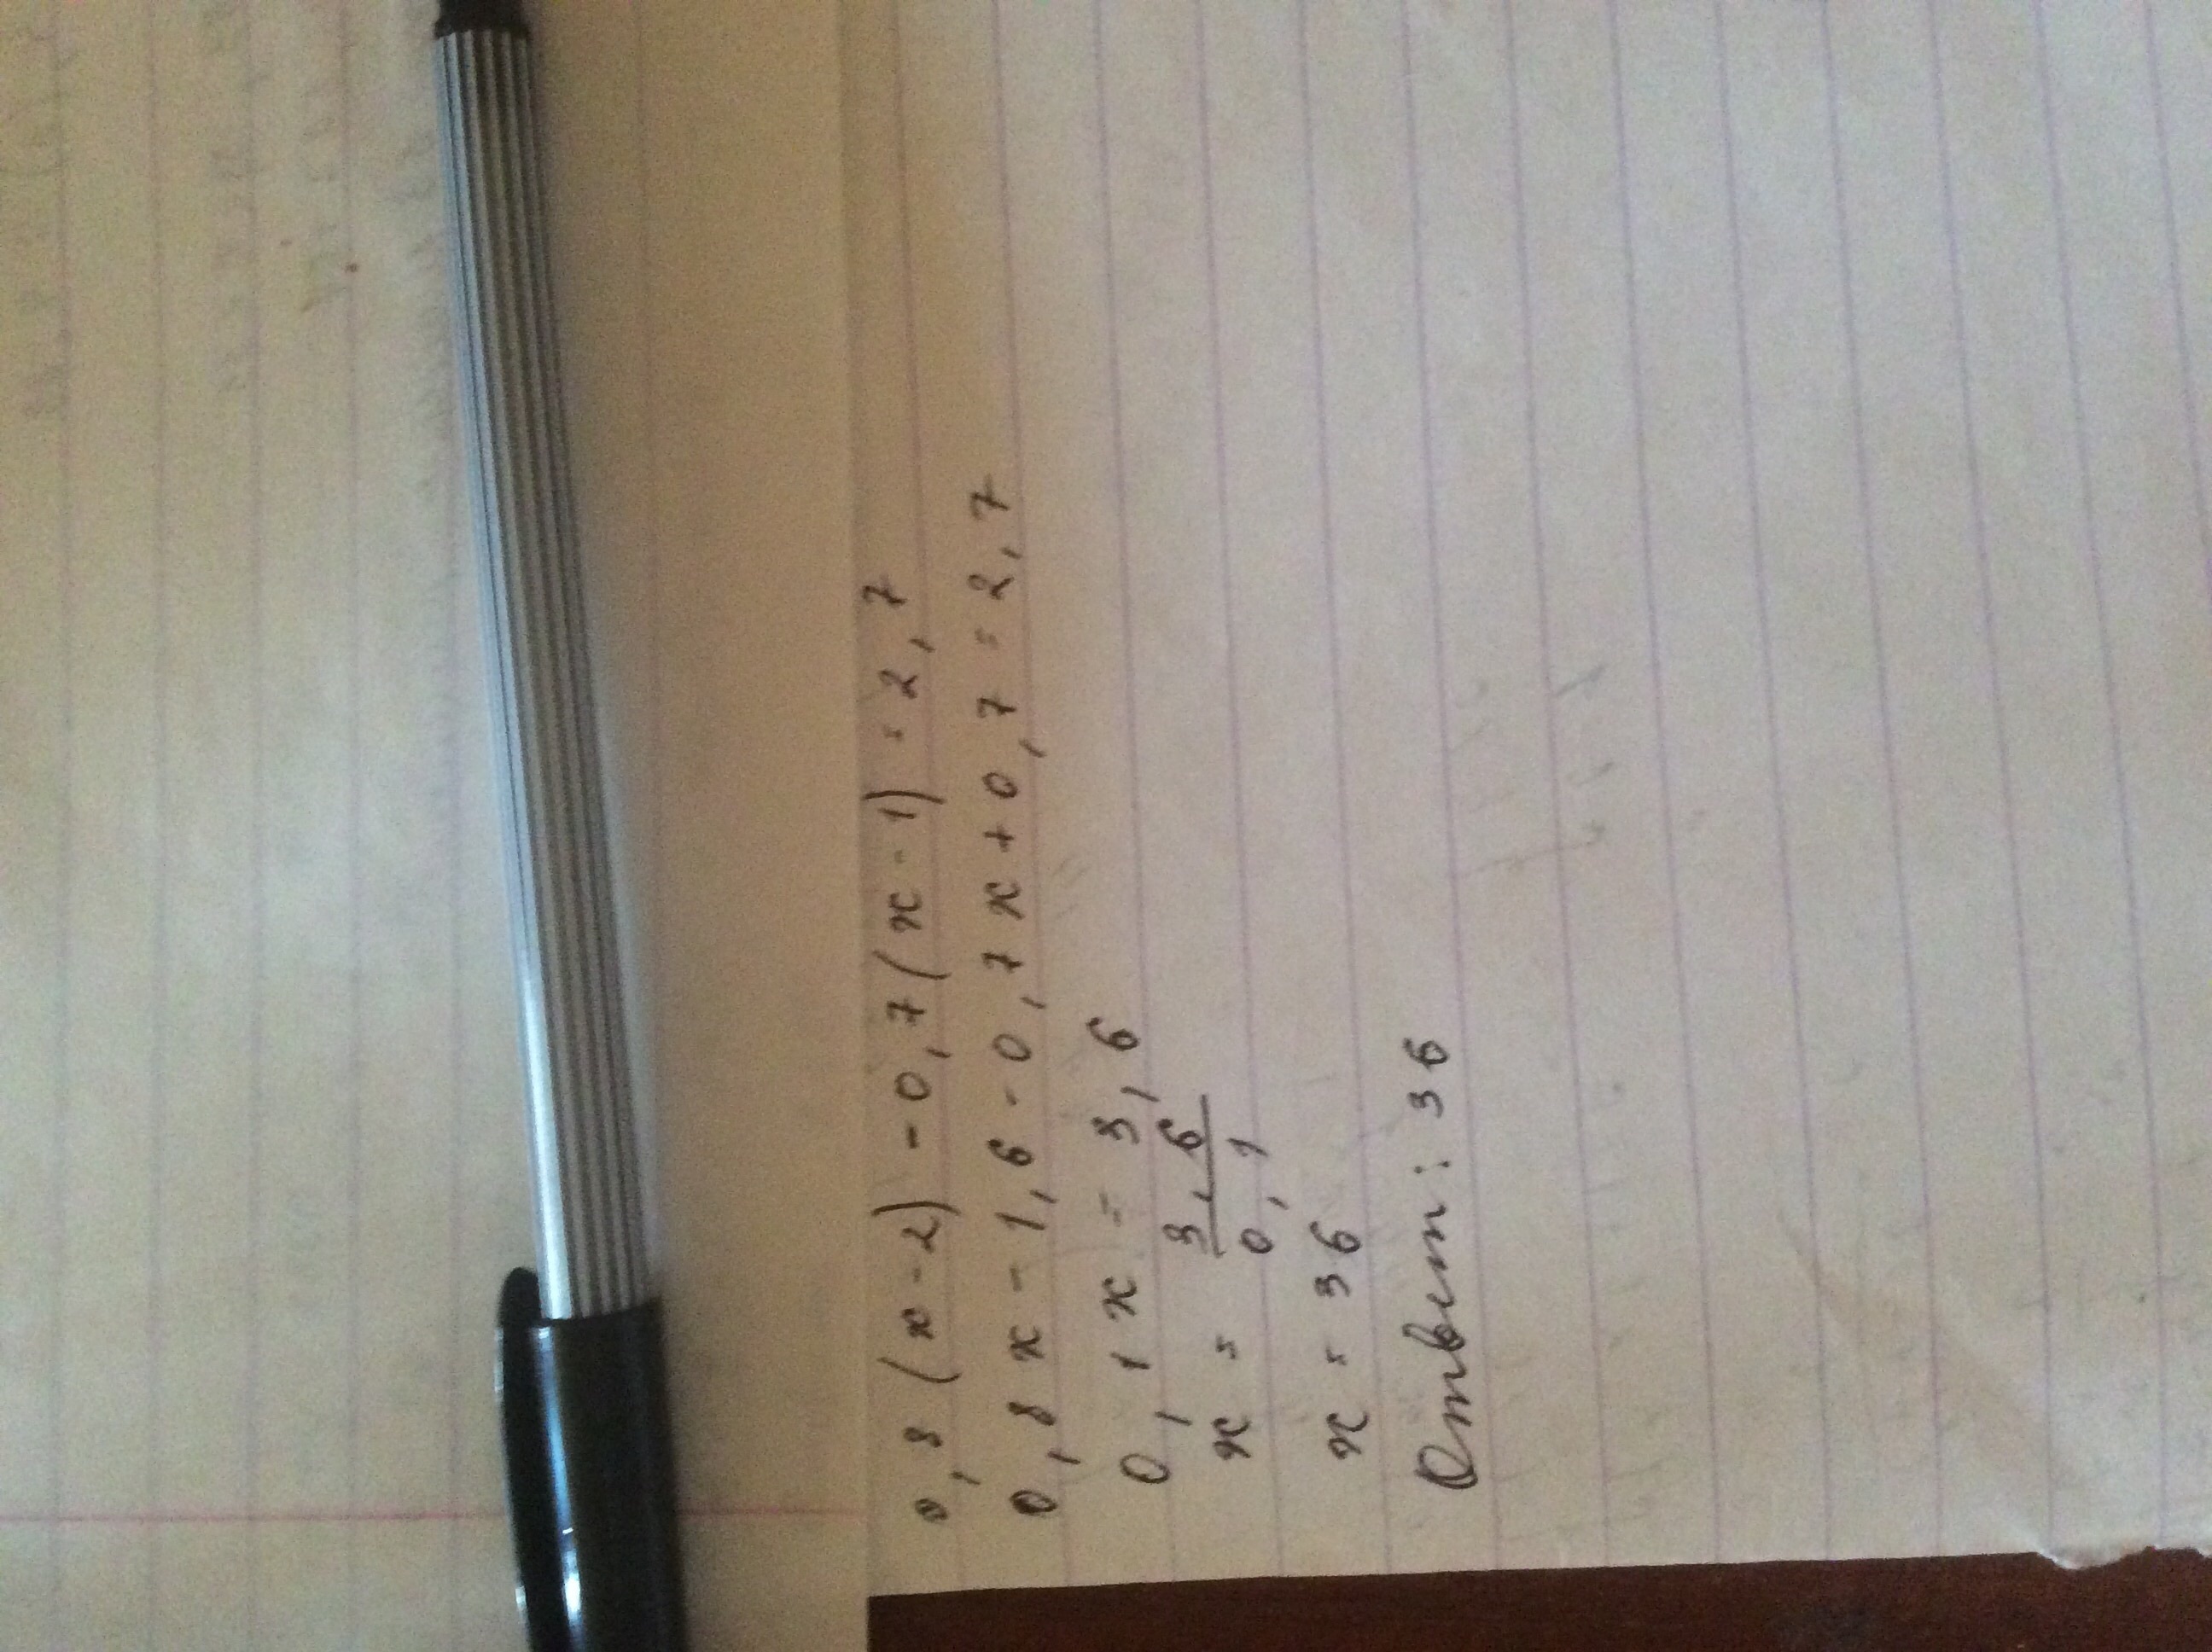 0,8(x-2)-0,7(x-1)=2,7
0,8x-1,6-0,7x+0,7=2,7
0,1x=3,6
x=3,6/0,1
x=36
Ответ: 36